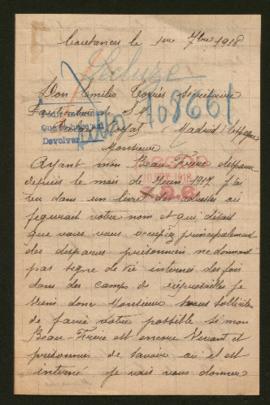 Coutances le 1er 7bre 1918
Don Emilio Torrés Secrétaire
Particulier de S.
108661
Devolver
Madrid Espagne
Monsieur
Ayant mon Beau-Frère disparu
depuis le mois de 1917 j'ai
vu dans un livre des adresses où
figurait votre nom et qui disait
que vous vous occupiez principalement
des disparus prisonniers ne donnant
pas signe de vie internés des fois
dans des camps de représailles je
viens donc Monsieur vous solliciter
de faire votre possible si mon
Beau-Frère est encore vivant et
prisonnier de savoir où il est
interné je vais vous donner